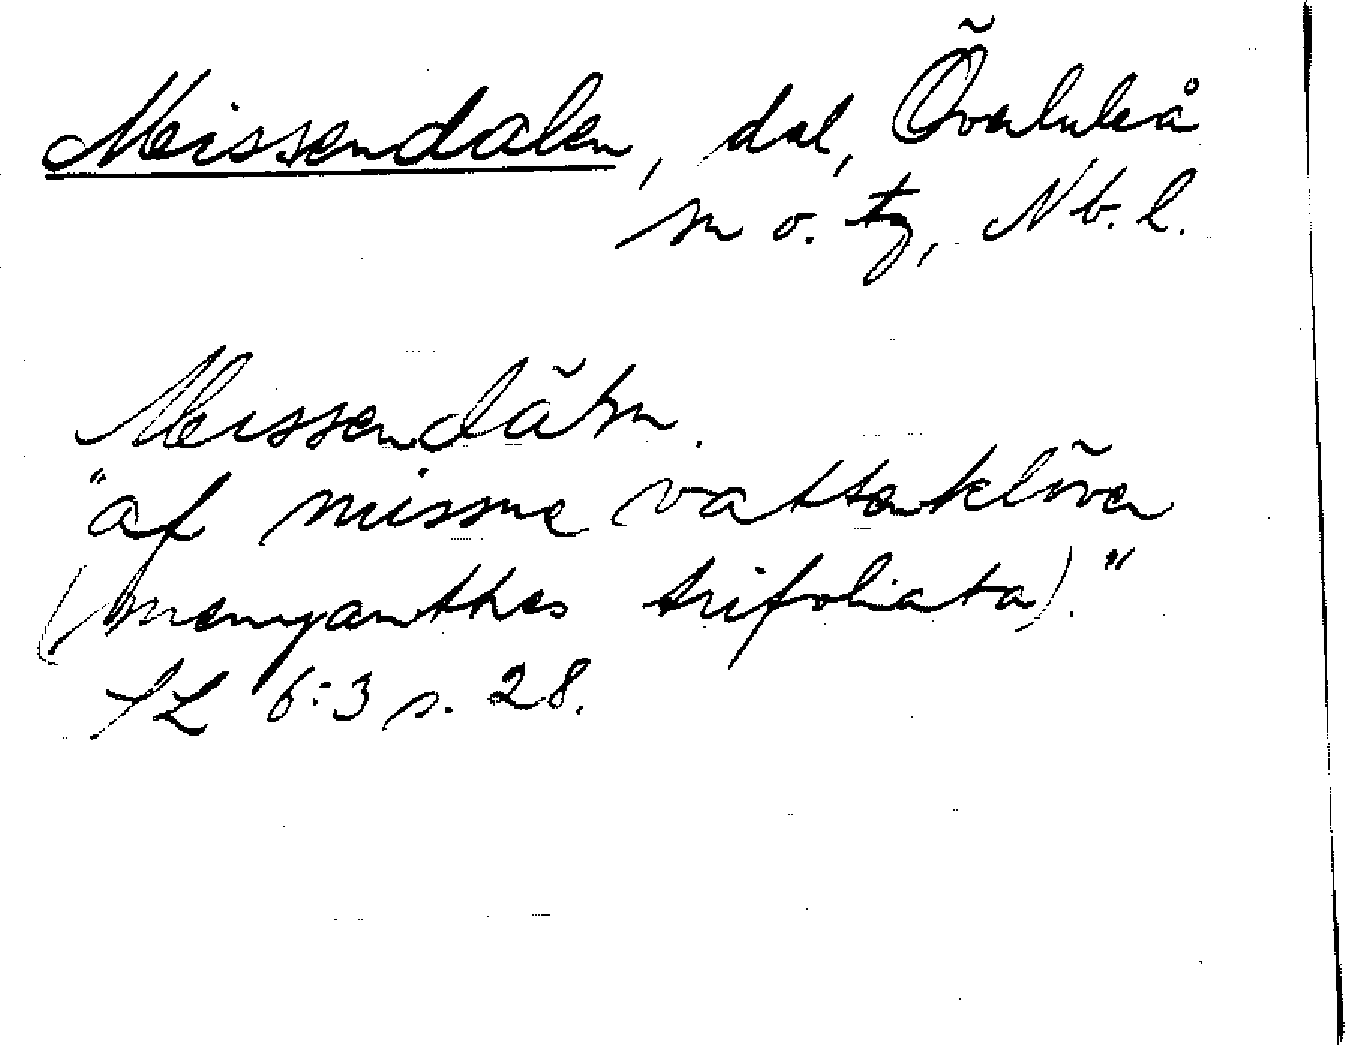 Missendalen, dal, Överluleå
sn o. tg, Nb. l.
Missendäln.
"af missne vattenklöver
(menyanthes trifoliata)."
SL 6:3 s. 28.